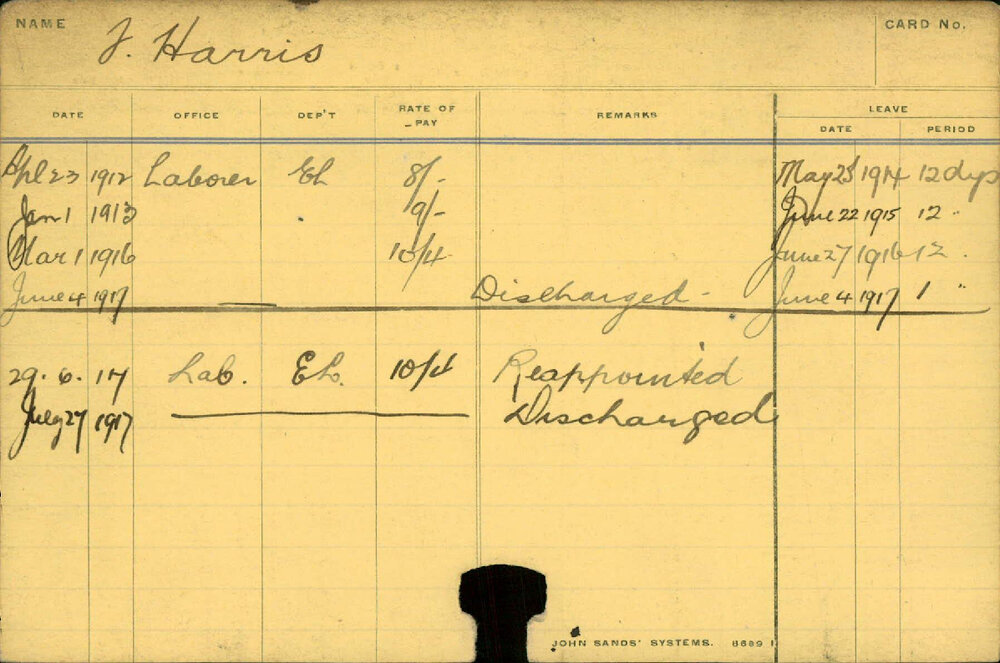 NAME J. Harris CARD No.
DATE OFFICE DEP'T RATE OF PAY REMARKS LEAVE
DATE PERIOD
Apl 23 1912 Laborer EL 8/- May 25 1914 12 dys
Jan 1 1913 9/- June 22 1915 12 "
Mar 1 1916 10/4 June 27 1916 12 "
June 4 1917 — Discharged - June 4 1917 1 "
29. 6. 17 Lab. EL. 10/4 Reappointed
July 27 1917 Discharged
JOHN SANDS' SYSTEMS. 8689